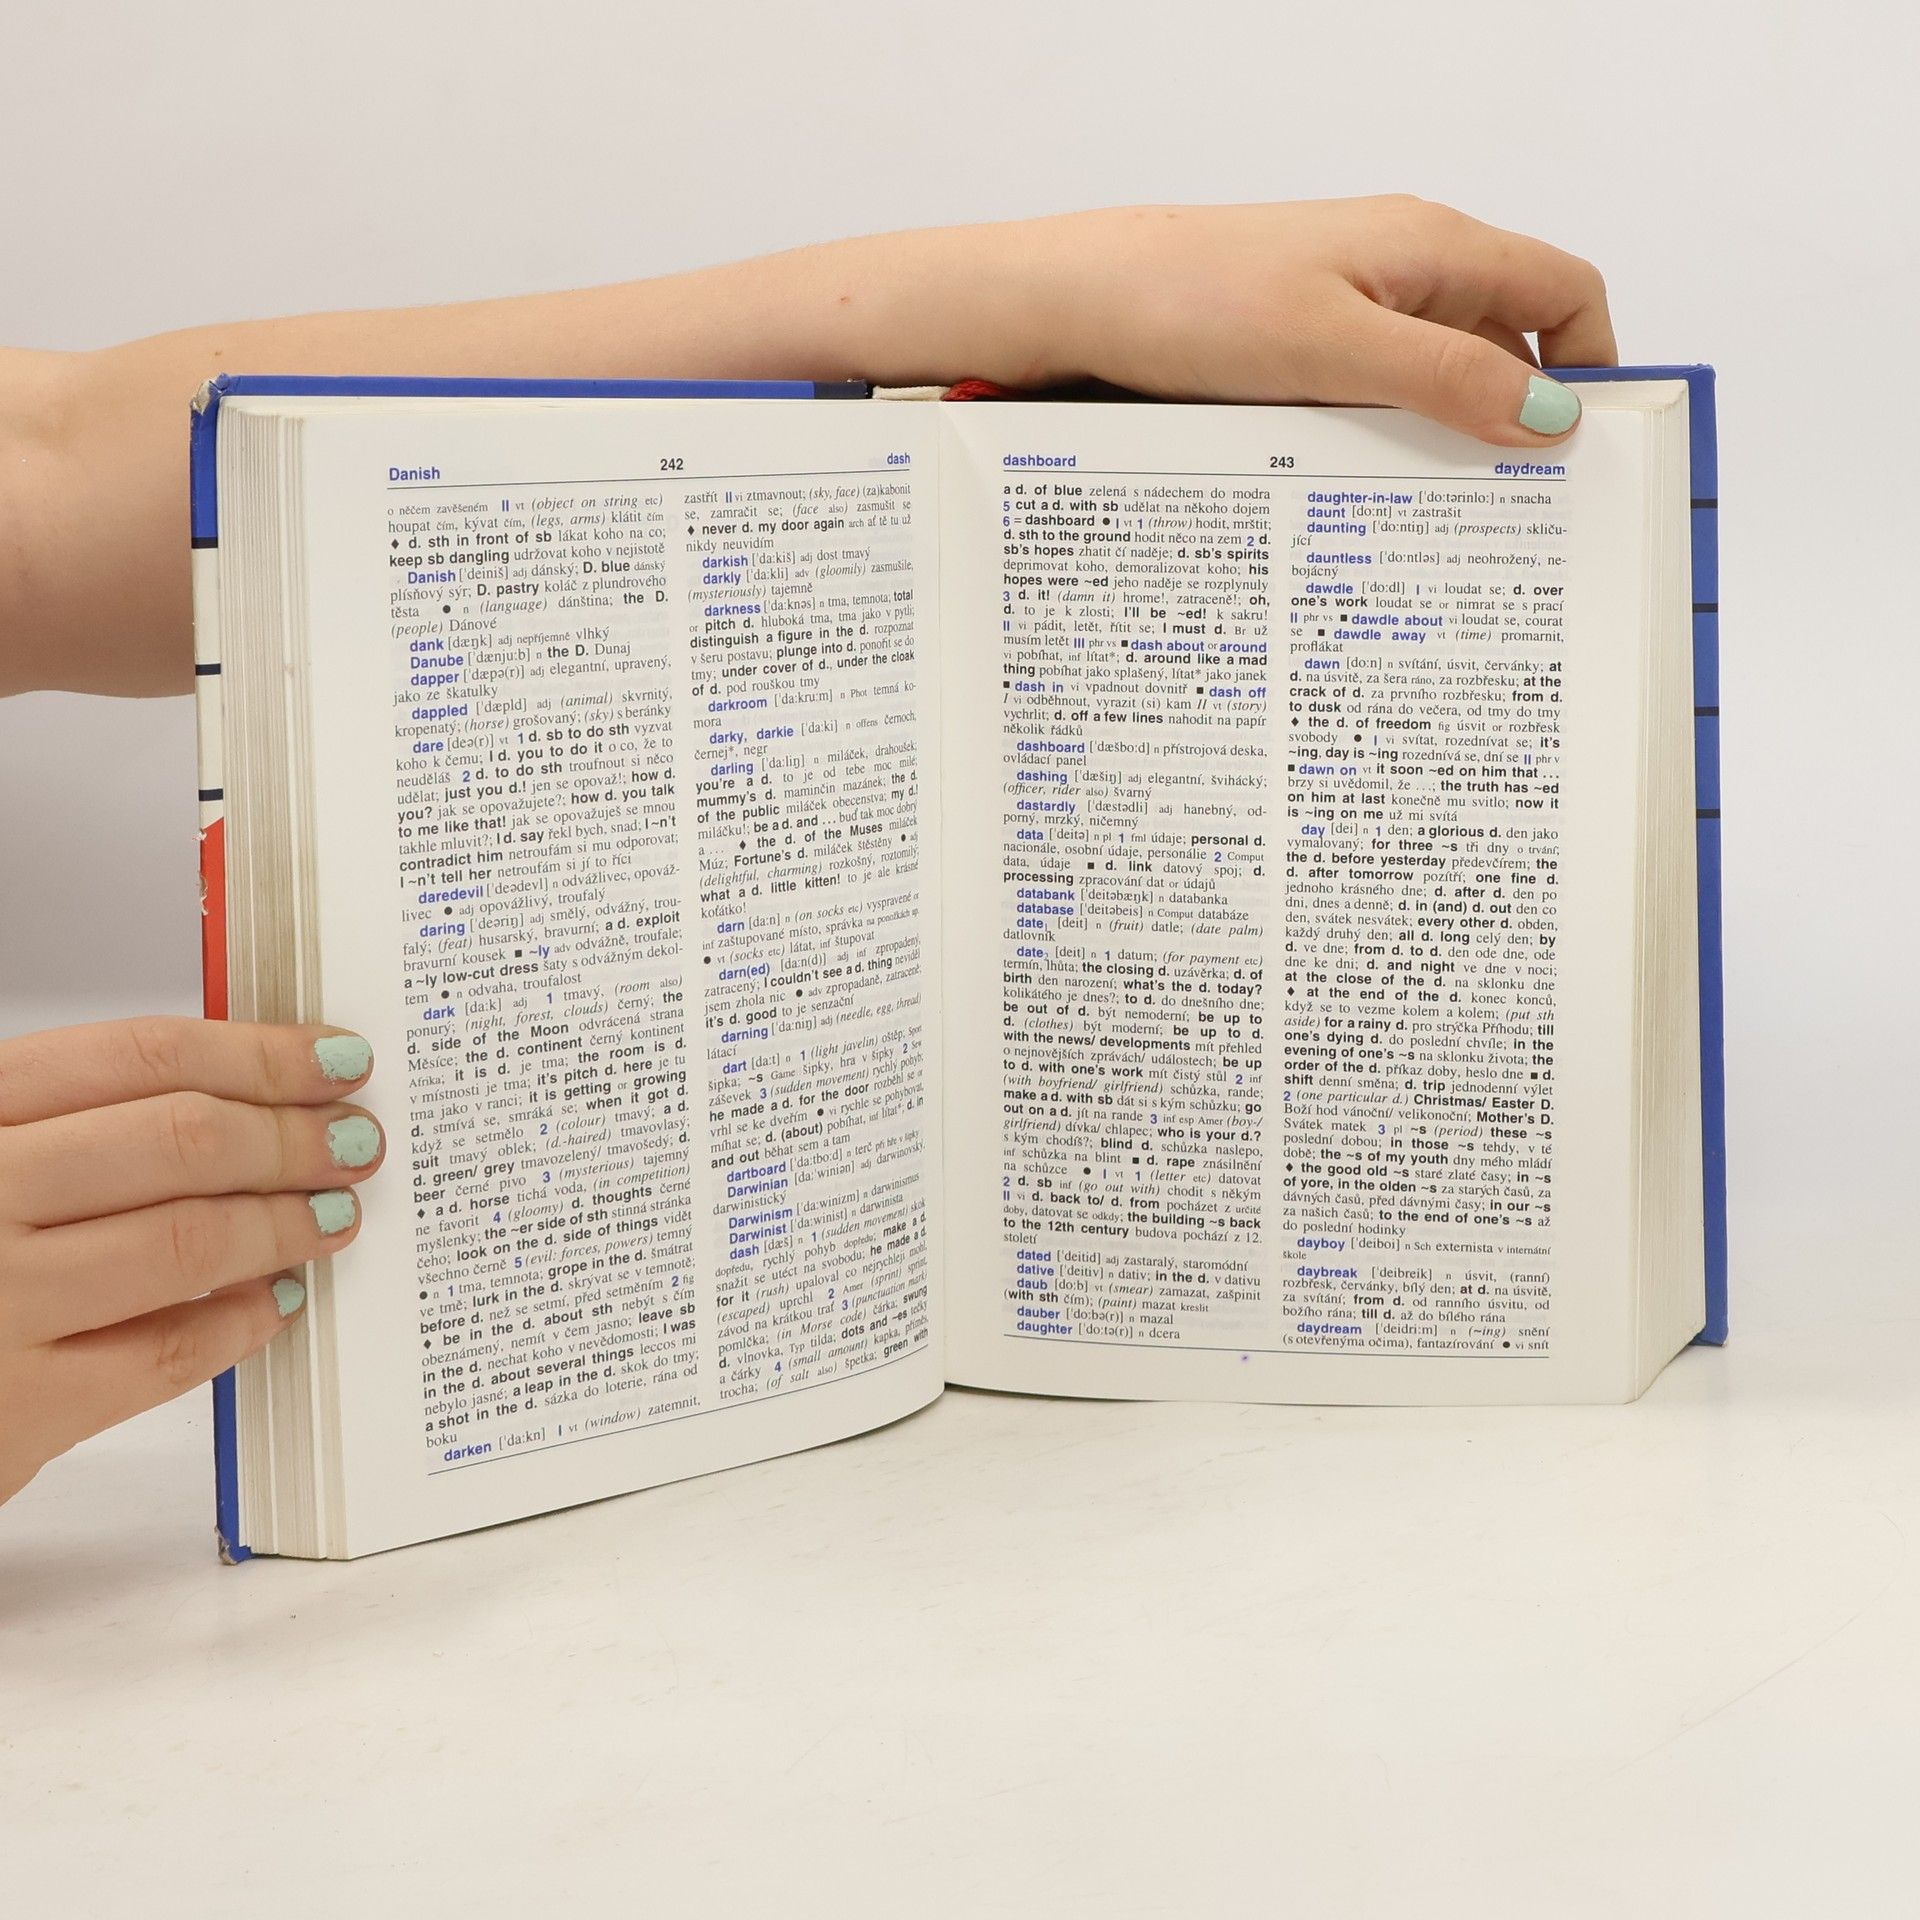 Danish 242 dash
o něčem zavěšeném II vt (object on string etc)
houpat čím, kývat čím, (legs, arms) klátit čím
♦ d. sth in front of sb lákat koho na co;
keep sb dangling udržovat koho v nejistotě
Danish [ˈdeiniš] adj dánský; D. blue dánský
plísňový sýr; D. pastry koláč z plundrového
těsta ● n (language) dánština; the D.
(people) Dánové
dank [dæŋk] adj nepříjemně vlhký
Danube [ˈdænju:b] n the D. Dunaj
dapper [ˈdæpə(r)] adj elegantní, upravený,
jako ze škatulky
dappled [ˈdæpld] adj (animal) skvrnitý,
kropenatý; (horse) grošovaný; (sky) s beránky
dare [deə(r)] vt 1 d. sb to do sth vyzvat
koho k čemu; I d. you to do it o co, že to
neuděláš 2 d. to do sth troufnout si něco
udělat; just you d.! jen se opovaž!; how d.
you? jak se opovažujete?; how d. you talk
to me like that! jak se opovažuješ se mnou
takhle mluvit?; I d. say řekl bych, snad; I ~n't
contradict him netroufám si mu odporovat;
I ~n't tell her netroufám si jí to říci
daredevil [ˈdeədevl] n odvážlivec, opováž-
livec ● adj opovážlivý, troufalý
daring [ˈdeəriŋ] adj smělý, odvážný, trou-
falý; (feat) husarský, bravurní; a d. exploit
bravurní kousek ■ ~ly adv odvážně, troufale;
a ~ly low-cut dress šaty s odvážným dekol-
tem ● n odvaha, troufalost
dark [da:k] adj 1 tmavý, (room also)
ponurý; (night, forest, clouds) černý; the
d. side of the Moon odvrácená strana
Měsíce; the d. continent černý kontinent
Afrika; it is d. je tma; the room is d.
v místnosti je tma; it's pitch d. here je tu
tma jako v ranci; it is getting or growing
d. stmívá se, smráká se; when it got d.
když se setmělo 2 (colour) tmavý; a d.
suit tmavý oblek; (d.-haired) tmavovlasý;
d. green/ grey tmavozelený/ tmavošedý; d.
beer černé pivo 3 (mysterious) tajemný
♦ a d. horse tichá voda, (in competition)
ne favorit 4 (gloomy) d. thoughts černé
myšlenky; the ~er side of sth stinná stránka
čeho; look on the d. side of things vidět
všechno černě 5 (evil: forces, powers) temný
● n 1 tma, temnota; grope in the d. šmátrat
ve tmě; lurk in the d. skrývat se v temnotě;
before d. než se setmí, před setměním 2 fig
♦ be in the d. about sth nebýt s čím
obeznámený, nemít v čem jasno; leave sb
in the d. nechat koho v nevědomosti; I was
in the d. about several things leccos mi
nebylo jasné; a leap in the d. skok do tmy;
a shot in the d. sázka do loterie, rána od
boku
darken [ˈda:kn] I vt (window) zatemnit,
zastřít II vi ztmavnout; (sky, face) (za)kabonit
se, zamračit se; (face also) zasmušit se
♦ never d. my door again arch ať tě tu už
nikdy neuvidím
darkish [ˈda:kiš] adj dost tmavý
darkly [ˈda:kli] adv (gloomily) zasmušile,
(mysteriously) tajemně
darkness [ˈda:knəs] n tma, temnota; total
or pitch d. hluboká tma, tma jako v pytli;
distinguish a figure in the d. rozpoznat
v šeru postavu; plunge into d. ponořit se do
tmy; under cover of d., under the cloak
of d. pod rouškou tmy
darkroom [ˈda:kru:m] n Phot temná ko-
mora
darky, darkie [ˈda:ki] n offens černoch,
černej*, negr
darling [ˈda:liŋ] n miláček, drahoušek;
you're a d. to je od tebe moc milé;
mummy's d. maminčin mazánek; the d.
of the public miláček obecenstva; my d.!
miláčku!; be a d. and ... buď tak moc dobrý
a ... ♦ the d. of the Muses miláček
Múz; Fortune's d. miláček štěstěny ● adj
(delightful, charming) rozkošný, roztomilý;
what a d. little kitten! to je ale krásné
koťátko!
darn [da:n] n (on socks etc) vyspravené or
inf zaštupované místo, správka na ponožkách ap.
● vt (socks etc) látat, inf štupovat
darn(ed) [da:n(d)] adj inf zpropadený,
zatracený; I couldn't see a d. thing neviděl
jsem zhola nic ● adv zpropadaně, zatraceně;
it's d. good to je senzační
darning [ˈda:niŋ] adj (needle, egg, thread)
látací
dart [da:t] n 1 (light javelin) oštěp; Sport
šipka; ~s Game šipky, hra v šipky 2 Sew
záševek 3 (sudden movement) rychlý pohyb;
he made a d. for the door rozběhl se or
vrhl se ke dveřím ● vi rychle se pohybovat,
míhat se; d. (about) pobíhat, inf lítat*; d. in
and out běhat sem a tam
dartboard [ˈda:tbo:d] n terč při hře v šipky
Darwinian [da:ˈwiniən] adj darwinovský,
darwinistický
Darwinism [ˈda:winizm] n darwinismus
Darwinist [ˈda:winist] n darwinista
dash [dæš] n 1 (sudden movement) skok
dopředu, rychlý pohyb dopředu; make a d.
snažit se utéct na svobodu; he made a d.
for it (rush) upaloval co nejrychleji mohl,
(escaped) uprchl 2 Amer (sprint) sprint,
závod na krátkou trať 3 (punctuation mark)
pomlčka; (in Morse code) čárka; swung
d. vlnovka, Typ tilda; dots and ~es tečky
a čárky 4 (small amount) kapka, příměs,
trocha; (of salt also) špetka; green with
dashboard 243 daydream
a d. of blue zelená s nádechem do modra
5 cut a d. with sb udělat na někoho dojem
6 = dashboard ● I vt 1 (throw) hodit, mrštit;
d. sth to the ground hodit něco na zem 2 d.
sb's hopes zhatit čí naděje; d. sb's spirits
deprimovat koho, demoralizovat koho; his
hopes were ~ed jeho naděje se rozplynuly
3 d. it! (damn it) hrome!, zatraceně!; oh,
d. to je k zlosti; I'll be ~ed! k sakru!
II vi pádit, letět, řítit se; I must d. Br už
musím letět III phr vs ■ dash about or around
vi pobíhat, inf lítat*; d. around like a mad
thing pobíhat jako splašený, lítat* jako janek
■ dash in vi vpadnout dovnitř ■ dash off
I vi odběhnout, vyrazit (si) kam II vt (story)
vychrlit; d. off a few lines nahodit na papír
několik řádků
dashboard [ˈdæšbo:d] n přístrojová deska,
ovládací panel
dashing [ˈdæšiŋ] adj elegantní, švihácký;
(officer, rider also) švarný
dastardly [ˈdæstədli] adj hanebný, od-
porný, mrzký, ničemný
data [ˈdeitə] n pl 1 fml údaje; personal d.
nacionále, osobní údaje, personálie 2 Comput
data, údaje ■ d. link datový spoj; d.
processing zpracování dat or údajů
databank [ˈdeitəbæŋk] n databanka
database [ˈdeitəbeis] n Comput databáze
date₁ [deit] n (fruit) datle; (date palm)
datlovník
date₂ [deit] n 1 datum; (for payment etc)
termín, lhůta; the closing d. uzávěrka; d. of
birth den narození; what's the d. today?
kolikátého je dnes?; to d. do dnešního dne;
be out of d. být nemoderní; be up to
d. (clothes) být moderní; be up to d.
with the news/ developments mít přehled
o nejnovějších zprávách/ událostech; be up
to d. with one's work mít čistý stůl 2 inf
(with boyfriend/ girlfriend) schůzka, rande;
make a d. with sb dát si s kým schůzku; go
out on a d. jít na rande 3 inf esp Amer (boy-/
girlfriend) dívka/ chlapec; who is your d.?
s kým chodíš?; blind d. schůzka naslepo,
inf schůzka na blint ■ d. rape znásilnění
na schůzce ● I vt 1 (letter etc) datovat
2 d. sb inf (go out with) chodit s někým
II vi d. back to/ d. from pocházet z určité
doby, datovat se odkdy; the building ~s back
to the 12th century budova pochází z 12.
století
dated [ˈdeitid] adj zastaralý, staromódní
dative [ˈdeitiv] n dativ; in the d. v dativu
daub [do:b] vt (smear) zamazat, zašpinit
(with sth čím); (paint) mazat kreslit
dauber [ˈdo:bə(r)] n mazal
daughter [ˈdo:tə(r)] n dcera
daughter-in-law [ˈdo:tərinlo:] n snacha
daunt [do:nt] vt zastrašit
daunting [ˈdo:ntiŋ] adj (prospects) skliču-
jící
dauntless [ˈdo:ntləs] adj neohrožený, ne-
bojácný
dawdle [ˈdo:dl] I vi loudat se; d. over
one's work loudat se or nimrat se s prací
II phr vs ■ dawdle about vi loudat se, courat
se ■ dawdle away vt (time) promarnit,
proflákat
dawn [do:n] n svítání, úsvit, červánky; at
d. na úsvitě, za šera ráno, za rozbřesku; at the
crack of d. za prvního rozbřesku; from d.
to dusk od rána do večera, od tmy do tmy
♦ the d. of freedom fig úsvit or rozbřesk
svobody ● I vi svítat, rozednívat se; it's
~ing, day is ~ing rozednívá se, dní se II phr v
■ dawn on vt it soon ~ed on him that ...
brzy si uvědomil, že ...; the truth has ~ed
on him at last konečně mu svitlo; now it
is ~ing on me už mi svítá
day [dei] n 1 den; a glorious d. den jako
vymalovaný; for three ~s tři dny o trvání;
the d. before yesterday předevčírem; the
d. after tomorrow pozítří; one fine d.
jednoho krásného dne; d. after d. den po
dni, dnes a denně; d. in (and) d. out den co
den, svátek nesvátek; every other d. obden,
každý druhý den; all d. long celý den; by
d. ve dne; from d. to d. den ode dne, ode
dne ke dni; d. and night ve dne v noci;
at the close of the d. na sklonku dne
♦ at the end of the d. konec konců,
když se to vezme kolem a kolem; (put sth
aside) for a rainy d. pro strýčka Příhodu; till
one's dying d. do poslední chvíle; in the
evening of one's ~s na sklonku života; the
order of the d. příkaz doby, heslo dne ■ d.
shift denní směna; d. trip jednodenní výlet
2 (one particular d.) Christmas/ Easter D.
Boží hod vánoční/ velikonoční; Mother's D.
Svátek matek 3 pl ~s (period) these ~s
poslední dobou; in those ~s tehdy, v té
době; the ~s of my youth dny mého mládí
♦ the good old ~s staré zlaté časy; in ~s
of yore, in the olden ~s za starých časů, za
dávných časů, před dávnými časy; in our ~s
za našich časů; to the end of one's ~s až
do poslední hodinky
dayboy [ˈdeiboi] n Sch externista v internátní
škole
daybreak [ˈdeibreik] n úsvit, (ranní)
rozbřesk, červánky, bílý den; at d. na úsvitě,
za svítání; from d. od ranního úsvitu, od
božího rána; till d. až do bílého rána
daydream [ˈdeidri:m] n (~ing) snění
(s otevřenýma očima), fantazírování ● vi snít